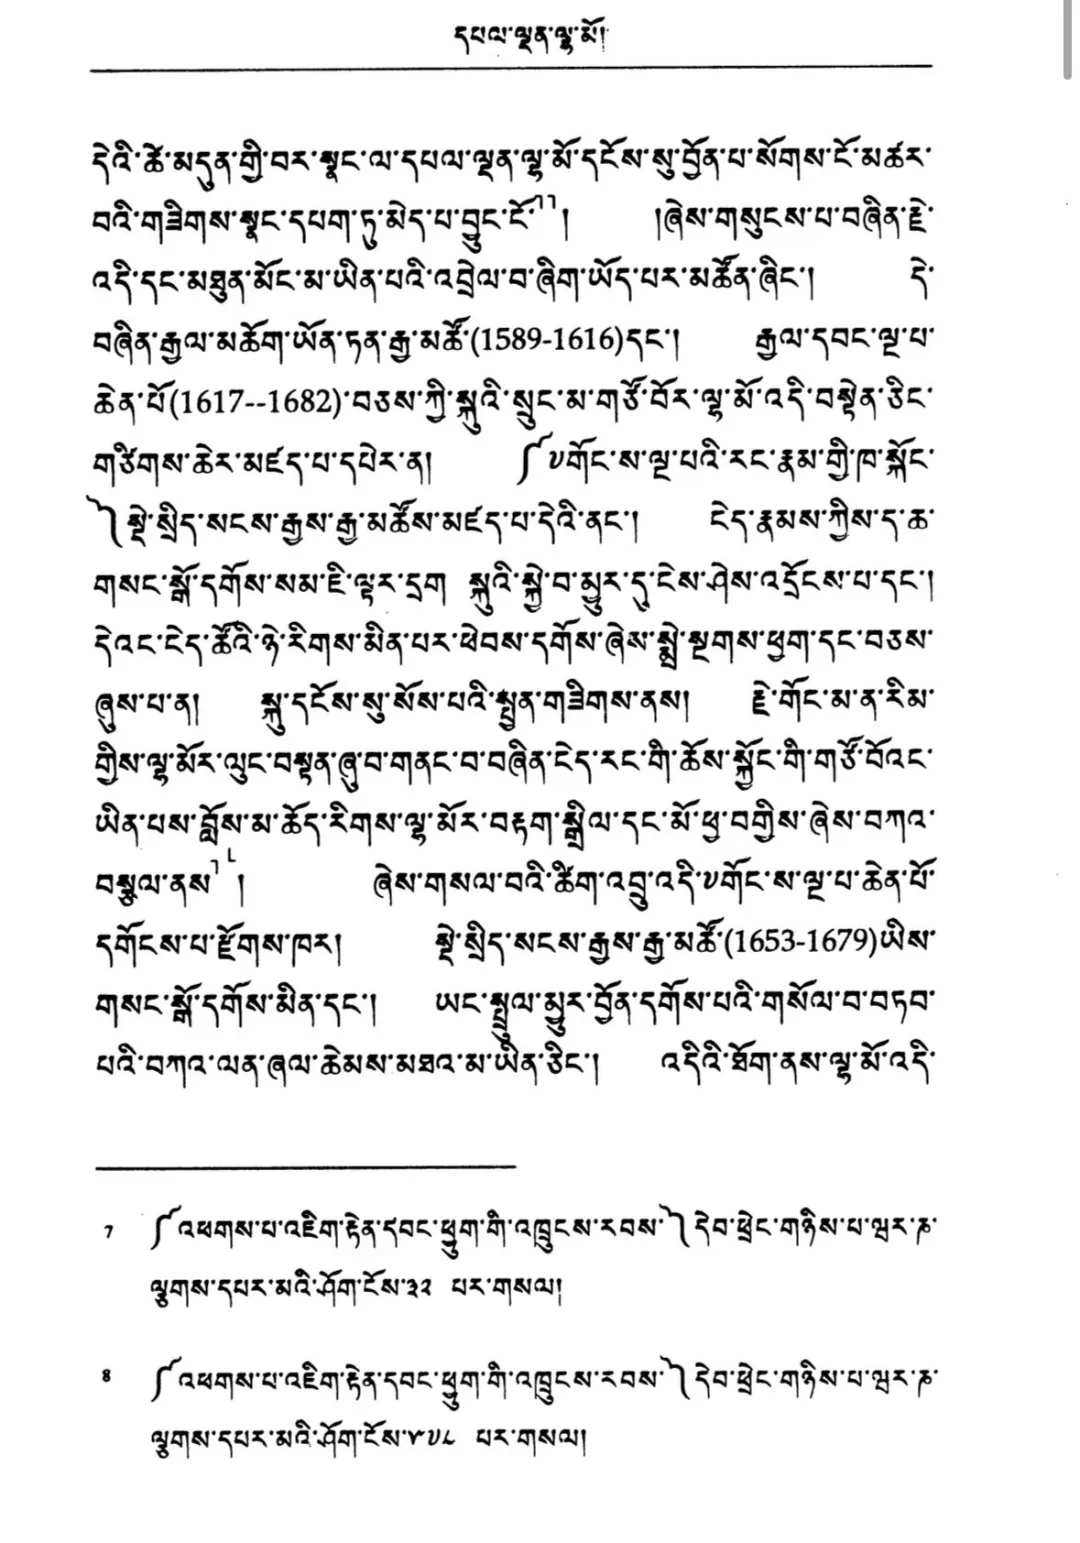 དཔལ་ལྡན་ལྷ་མོ།
དེའི་ཚེ་མདུན་གྱི་བར་སྣང་ལ་དཔལ་ལྡན་ལྷ་མོ་དངོས་སུ་བྱོན་པ་སོགས་ངོ་མཚར་
བའི་གཟིགས་སྣང་དཔག་ཏུ་མེད་པ་བྱུང་ངོ་༧། །ཞེས་གསུངས་པ་བཞིན་རྗེ་
འདི་དང་མཐུན་མོང་མ་ཡིན་པའི་འབྲེལ་བ་ཞིག་ཡོད་པར་མཚོན་ཞིང་། དེ་
བཞིན་རྒྱལ་མཆོག་ཡོན་ཏན་རྒྱ་མཚོ་(1589-1616)དང་། རྒྱལ་དབང་ལྔ་པ་
ཆེན་པོ(1617--1682)་བཅས་ཀྱི་སྐུའི་སྲུང་མ་གཙོ་བོར་ལྷ་མོ་འདི་བསྟེན་ཅིང་
གཙིགས་ཆེར་མཛད་པ་དཔེར་ན། ༼༧གོང་ས་ལྔ་པའི་རང་རྣམ་གྱི་ཁ་སྐོང་
༽སྡེ་སྲིད་སངས་རྒྱས་རྒྱ་མཚོས་མཛད་པ་དེའི་ནང་། ངེད་རྣམས་ཀྱིས་ད་ཆ་
གསང་སྒོ་དགོས་སམ་ཇི་ལྟར་དྲག སྐུའི་སྐྱེ་བ་མྱུར་དུ་ངེས་ཤེས་འདྲོངས་པ་དང་།
དེའང་ངེད་ཚོའི་ཉེ་རིགས་མིན་པར་ཕེབས་དགོས་ཞེས་སྨྲེ་སྔགས་ཕྱག་དང་བཅས་
ཞུས་པ་ན། སྐུ་དངོས་སུ་སོས་པའི་སྤྱན་གཟིགས་ནས། རྗེ་གོང་མ་ན་རིམ་
གྱིས་ལྷ་མོར་ལུང་བསྟན་ཞུ་བ་གནང་བ་བཞིན་ངེད་རང་གི་ཆོས་སྐྱོང་གི་གཙོ་བོའང་
ཡིན་པས་བློས་མ་ཆོད་རིགས་ལྷ་མོར་བརྟག་སྒྲིལ་དང་མོ་ཕྱ་བགྱིས་ཞེས་བཀའ་
བསྩལ་ནས༨། ཞེས་གསལ་བའི་ཚིག་འབྲུ་འདི་༧གོང་ས་ལྔ་པ་ཆེན་པོ་
དགོངས་པ་རྫོགས་ཁར། སྡེ་སྲིད་སངས་རྒྱས་རྒྱ་མཚོ་(1653-1679)ཡིས་
གསང་སྒོ་དགོས་མིན་དང་། ཡང་སྤྲུལ་མྱུར་བྱོན་དགོས་པའི་གསོལ་བ་བཏབ་
པའི་བཀའ་ལན་ཞལ་ཆེམས་མཐའ་མ་ཡིན་ཅིང་། འདིའི་ཐོག་ནས་ལྷ་མོ་འདི་
7 ༼འཕགས་པ་འཇིག་རྟེན་དབང་ཕྱུག་གི་འཁྲུངས་རབས་༽དེབ་ཕྲེང་གཉིས་པ་ལྷར་ཎ་
ལྕགས་དཔར་མའི་ཤོག་ངོས་༣༢ པར་གསལ།
8 ༼འཕགས་པ་འཇིག་རྟེན་དབང་ཕྱུག་གི་འཁྲུངས་རབས་༽དེབ་ཕྲེང་གཉིས་པ་ལྷར་ཎ་
ལྕགས་དཔར་མའི་ཤོག་ངོས་༤༧༨ པར་གསལ།